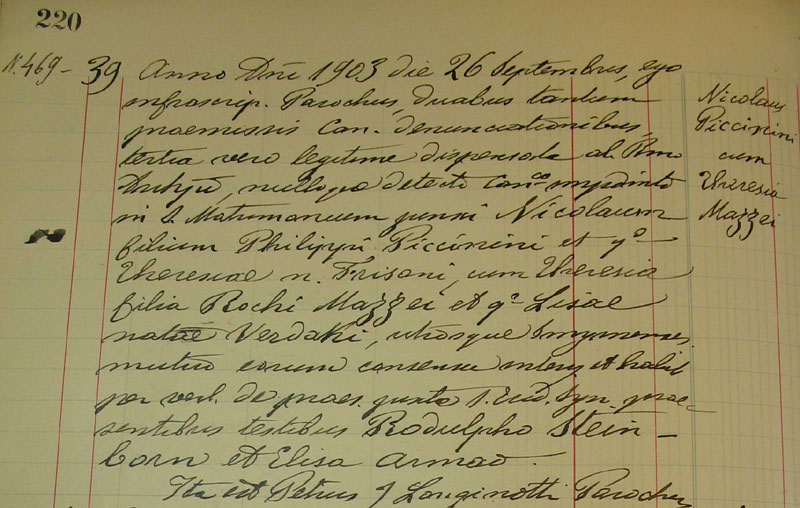 220
N. 469 - 39 Anno Dñi 1903 die 26 Septembris, ego
infrascrip. Parochus, duabus tantum
praemissis Can. denunciationibus,
tertia vero legitime dispensata ab Rmo
nulloque detecto Can.co impdinto
in S. Matrimonium junxi Nicolaum
filium Philippi Piccinini et qº
Theresiae n. Frisani, cum Theresia
filia Rochi Mazzei et qª Lisae
natae Verdaki, utrosque Smyrnenses
mutuo eorum consensu et habit
per verb. de praes. juxta S. Trid. Syn. prae-
sentibus testibus Rodulpho Stein-
born et Elisa Armao.
Ita est Petrus J Longinotti Parochus
Nicolaus
Piccinini
cum
Theresia
Mazzei